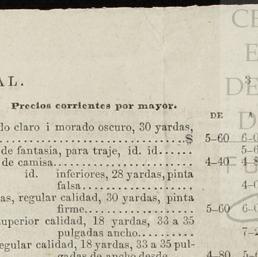 AL.
3
Precios corrientes por mayor.
DE
A
do claro i morado oscuro, 30 yardas,
$ 5–60 6–0
de fantasia, para traje, id. id. 5–6
de camisa 4–40 4–8
id. inferiores, 28 yardas, pinta
falsa 4–0
as, regular calidad, 30 yardas, pinta
firme 5–60 6–0
superior calidad, 18 yardas, 33 a 35
pulgadas ancho 7–2
regular calidad, 18 yardas, 33 a 35 pul-
gadas de ancho desde 4–80 5–6
CE
E
DE
DE